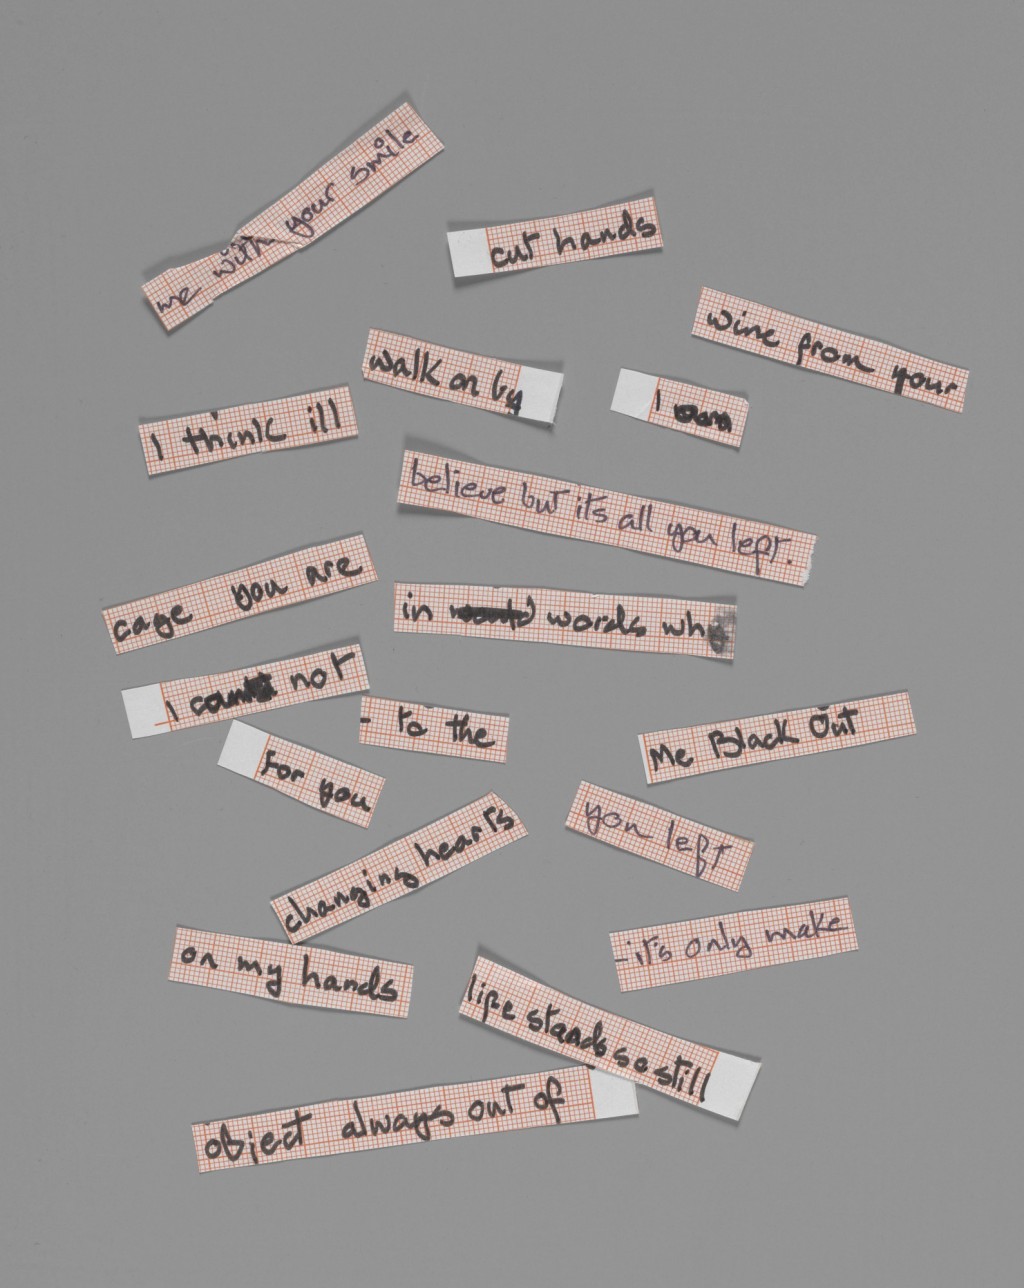 me with your smile
cut hands
wine from your
walk on by
I
I think ill
believe but its all you left.
cage you are
in words who
I not
- to the
Me Black Out
for you
you left
changing hearts
-it's only make
on my hands
life stands so still
object always out of